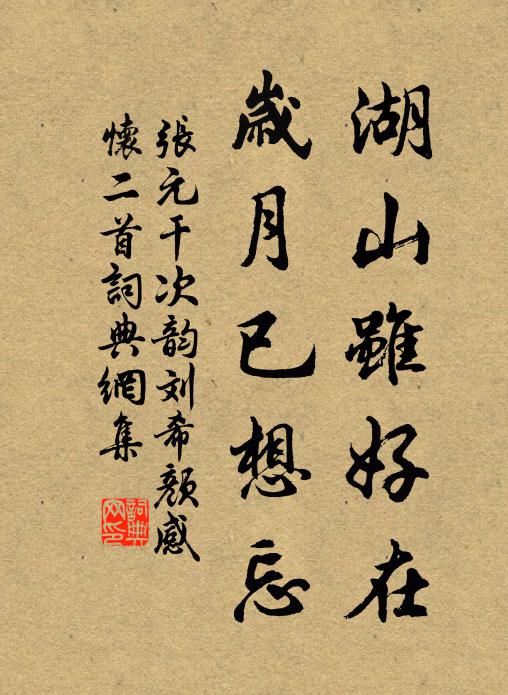 湖山雖好在
歲月已想忘
張元干次韵刘希顏感
懷二首詞典網集
詞典网印